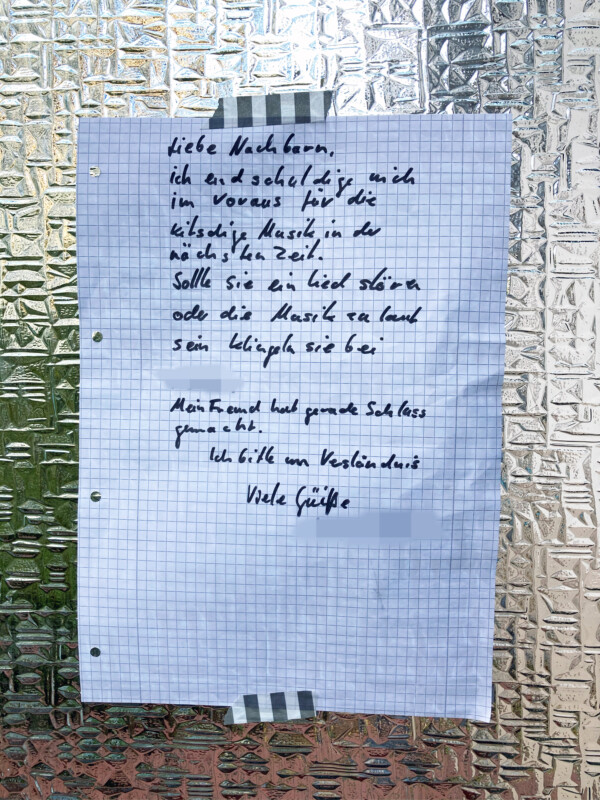 Liebe Nachbarn,
ich endschuldige mich
im voraus für die
kitschige Musik in der
nächsten Zeit.
Sollte sie ein lied stören
oder die Musik zu laut
sein klingeln sie bei
Mein Freund hat gerade Schluss
gemacht.
Ich bitte um Verständnis
Viele Grüße